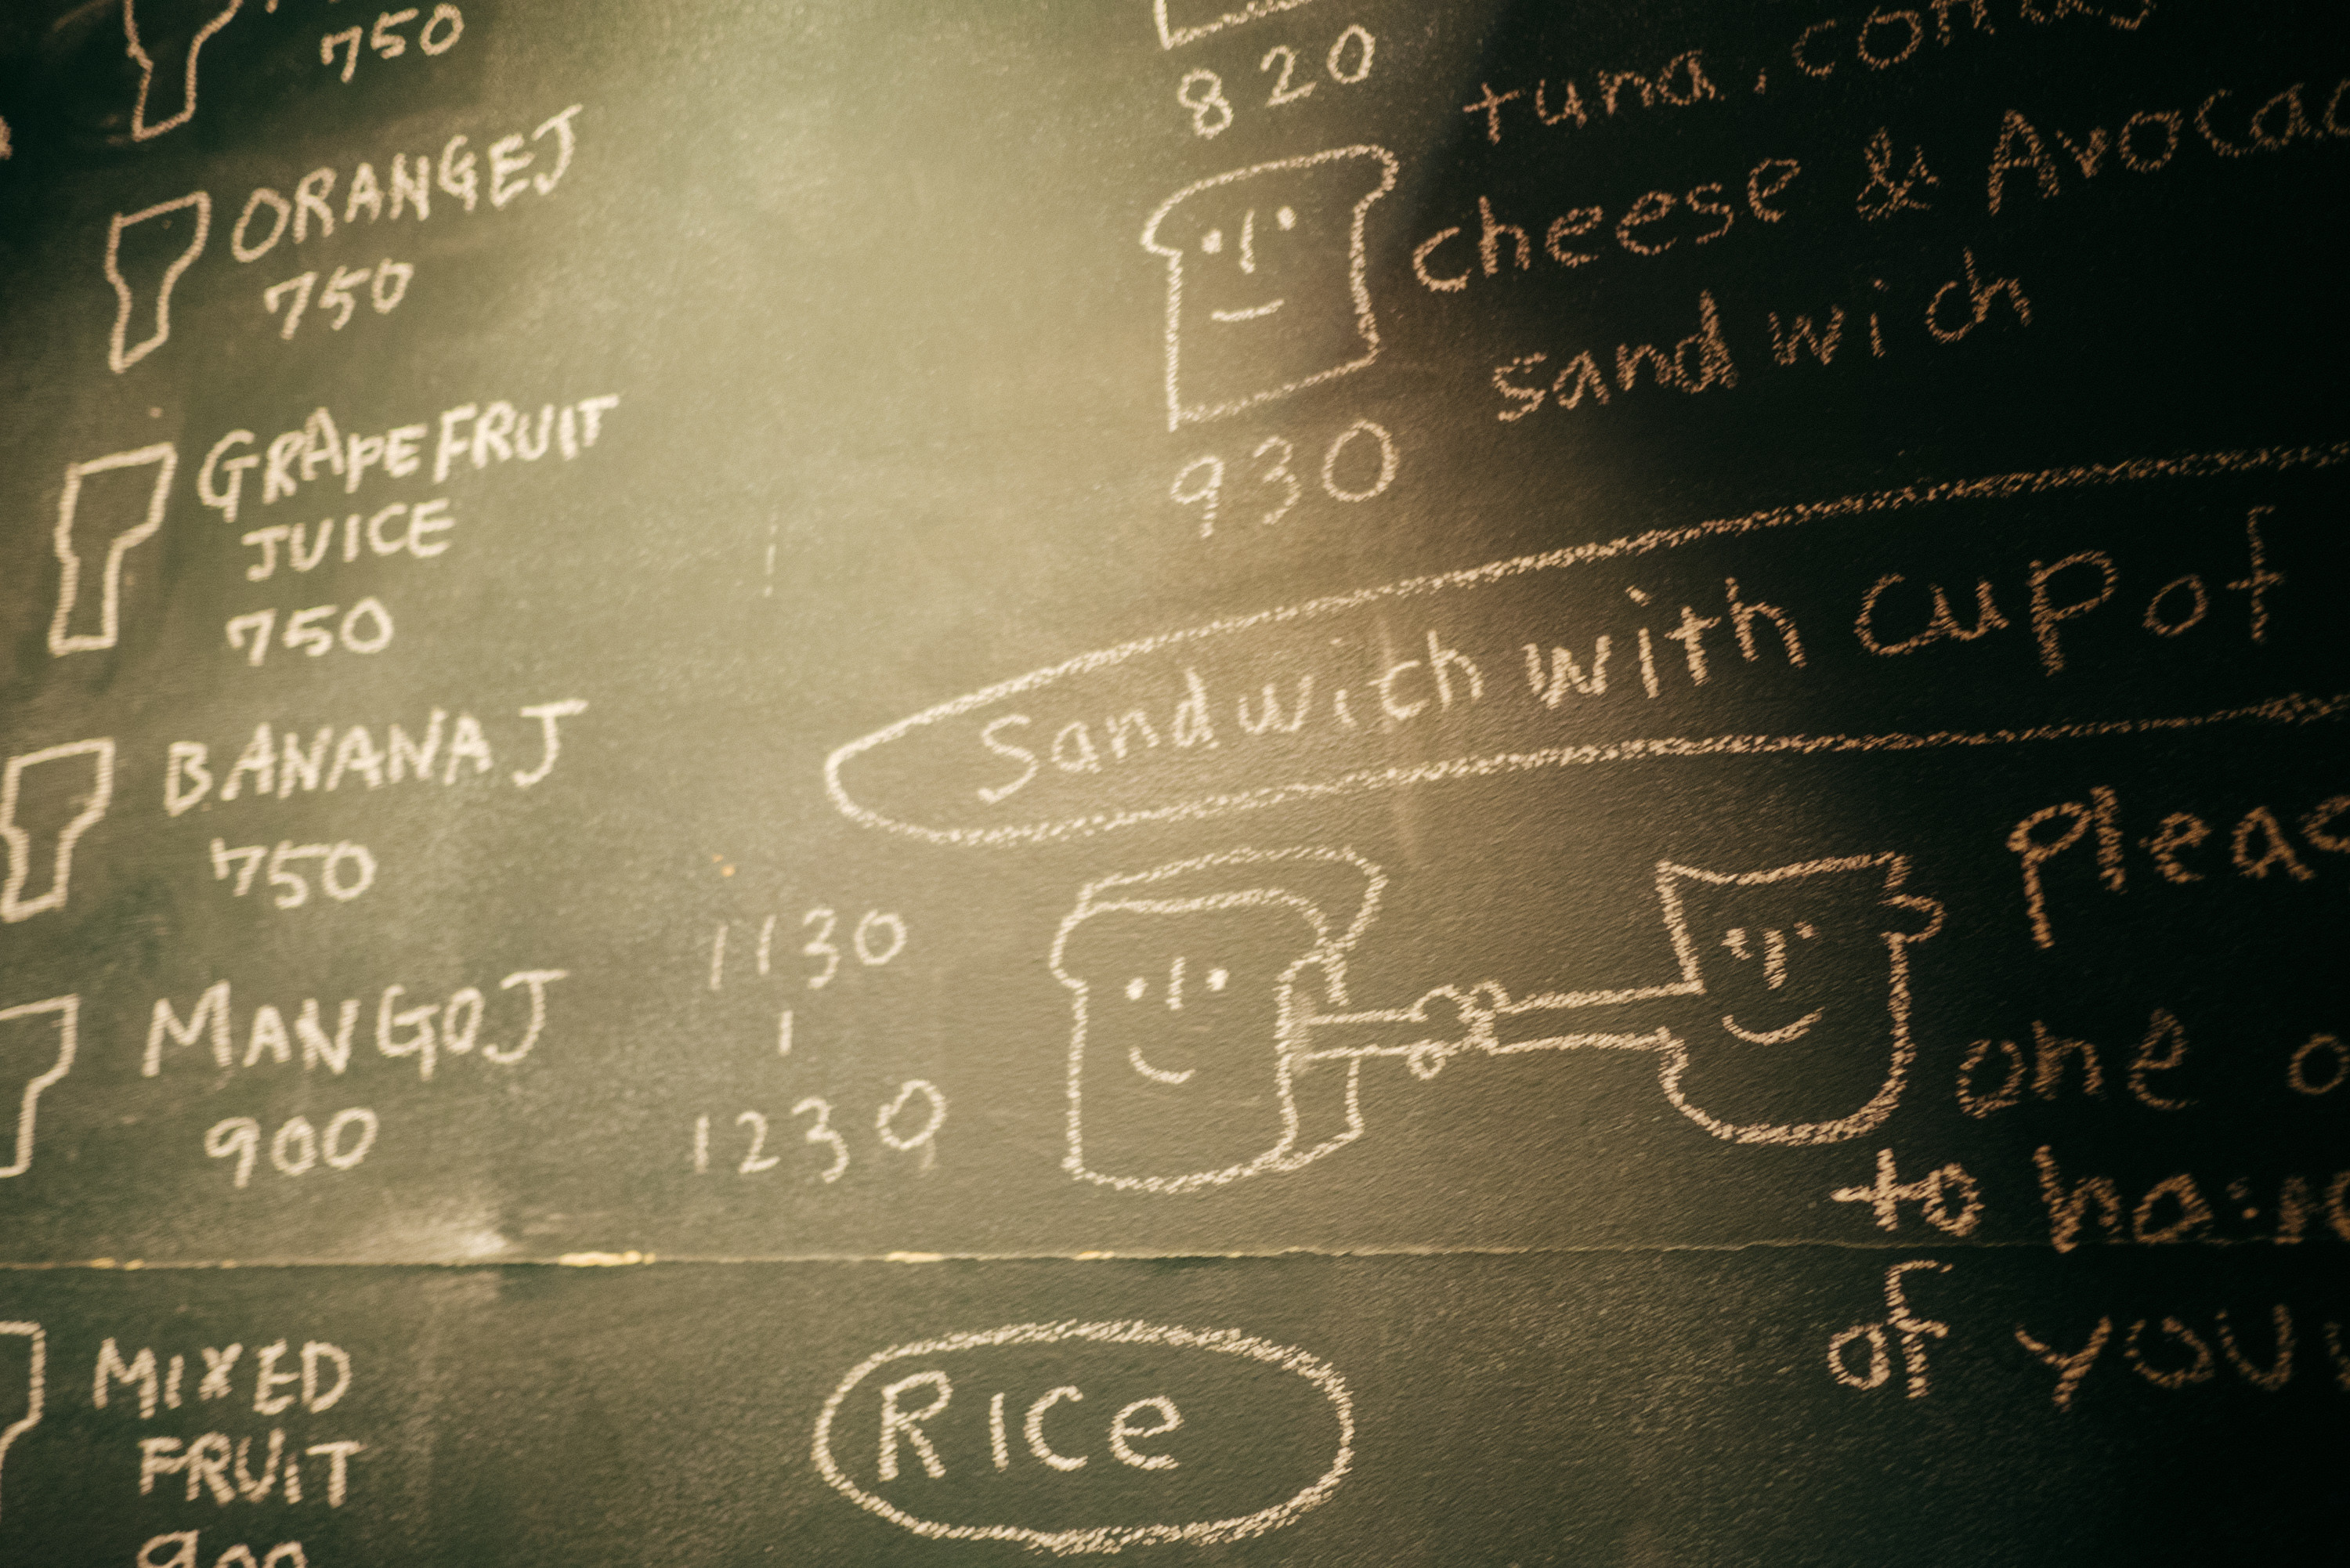 750
ORANGEJ
750
GRAPEFRUIT
JUICE
750
BANANA J
750
MANGOJ
900
MIXED
FRUIT
900
820
tuna,
cheese & Avocad
sandwich
930
Sandwich with cup of
1130
1230
Pleas
one o
to
of you
Rice